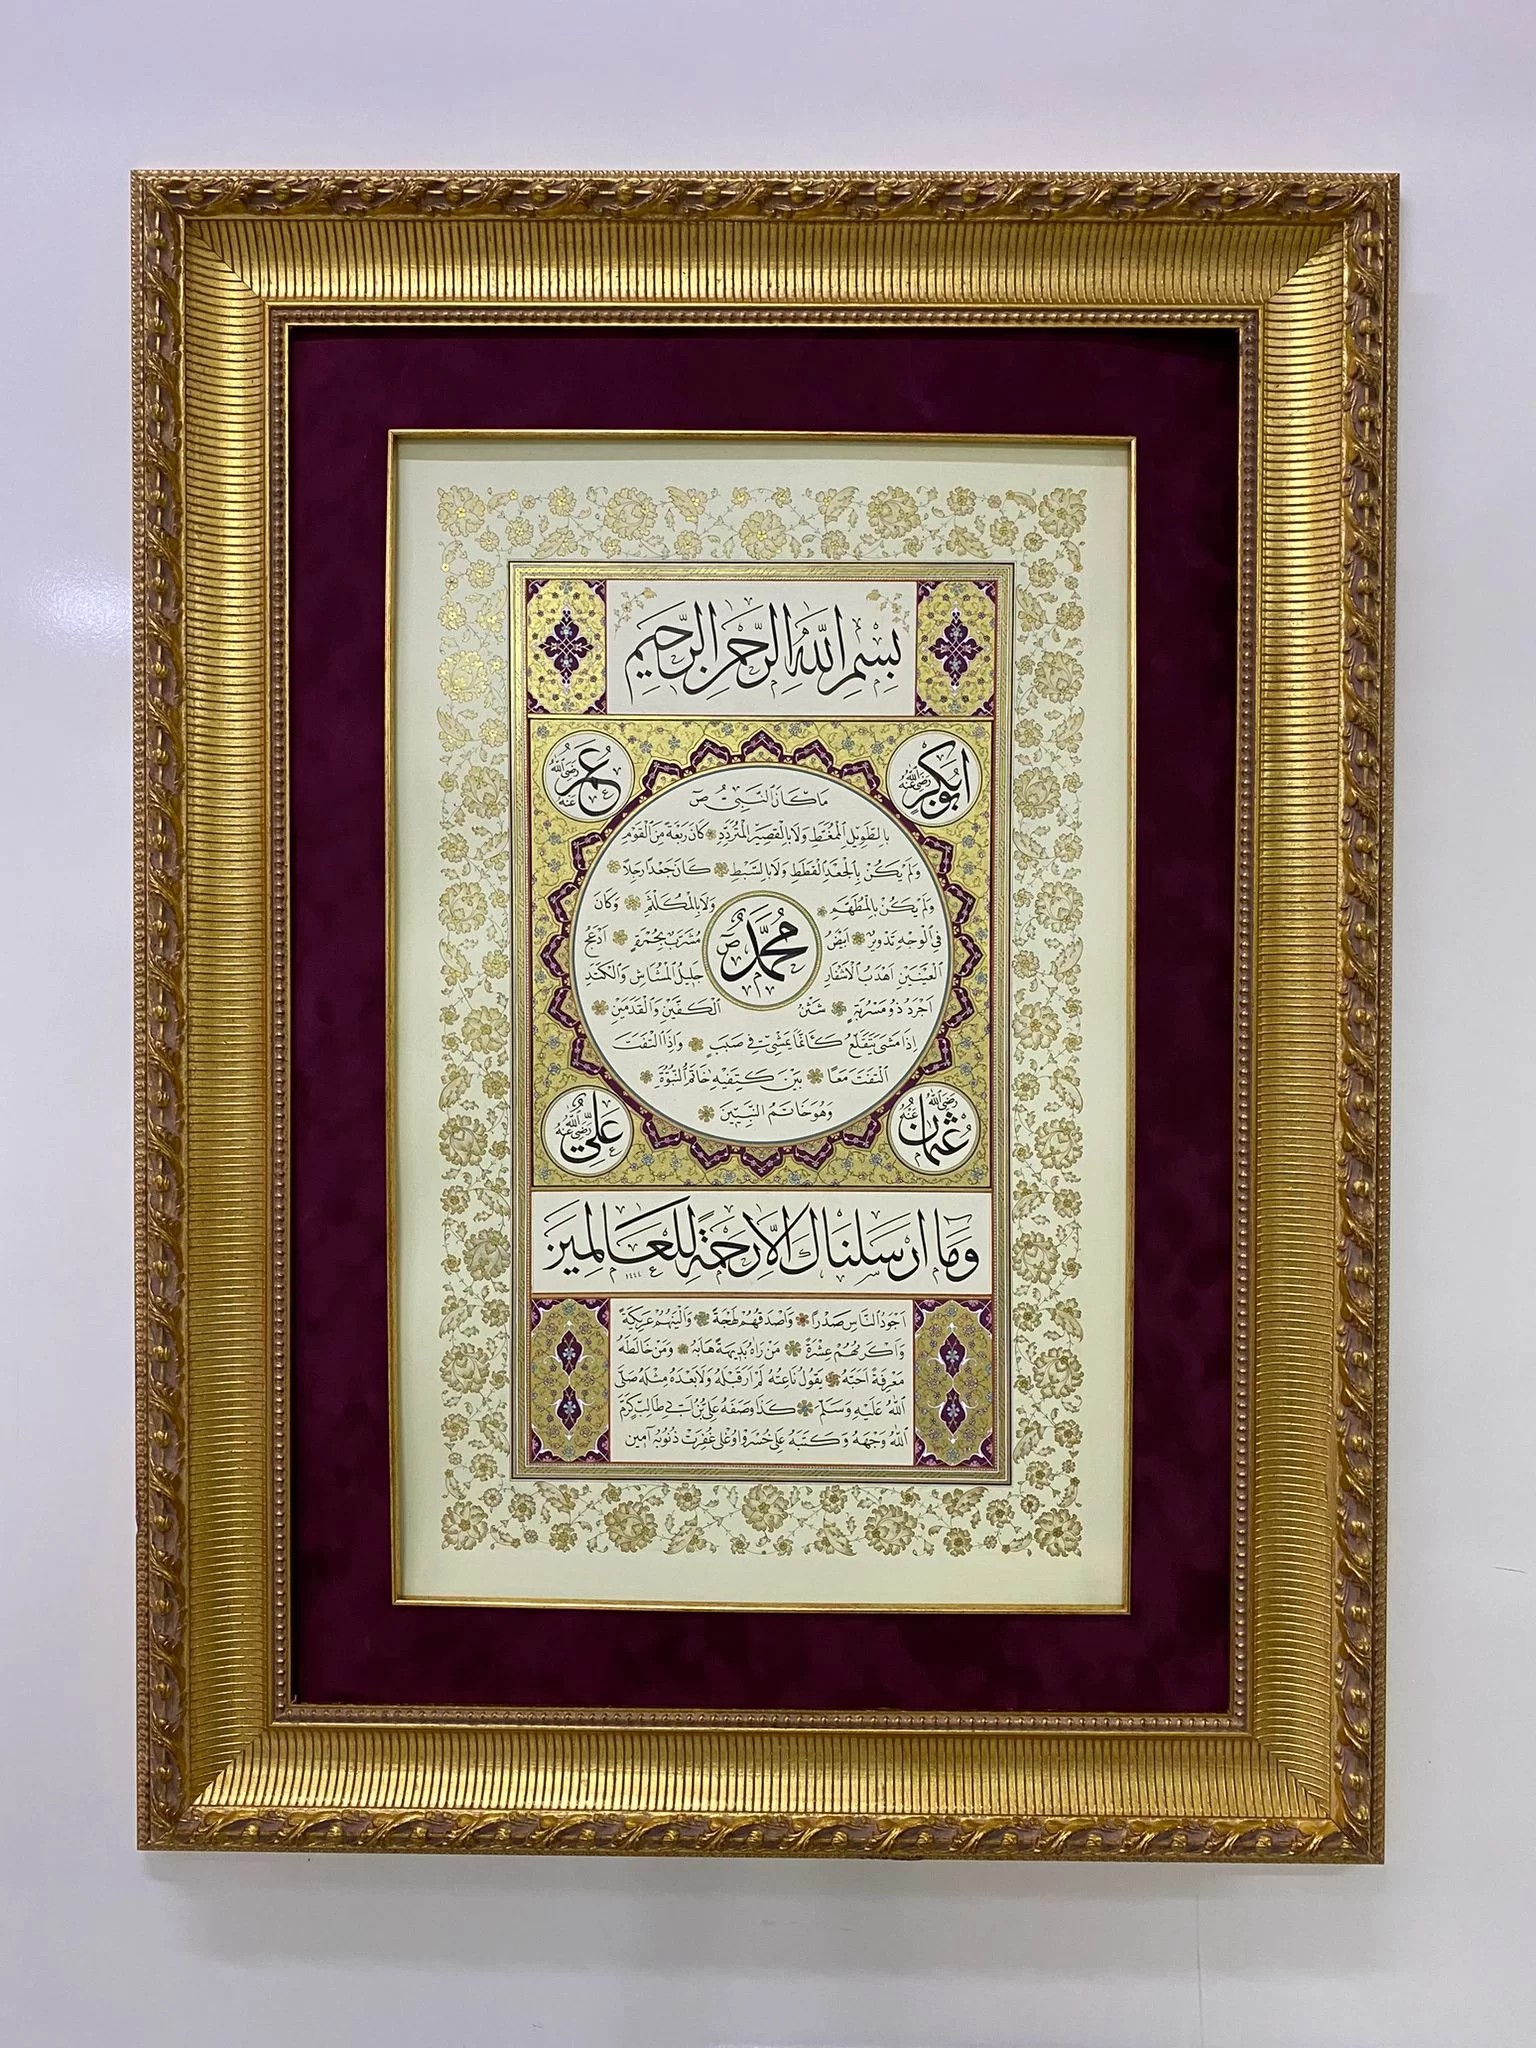 بِسْمِ اللّٰهِ الرَّحْمٰنِ الرَّحِيمِ
ابُوبَكْرٍ رَضِيَ اللّٰهُ عَنْهُ
عُمَرُ رَضِيَ اللّٰهُ عَنْهُ
مَا كَانَ النَّبِيُّ ص
بِالطَّوِيلِ الْمُمَّغِطِ وَلَا بِالْقَصِيرِ الْمُتَرَدِّدِ كَانَ رَبْعَةً مِنَ الْقَوْمِ
وَلَمْ يَكُنْ بِالْجَعْدِ الْقَطَطِ وَلَا بِالسَّبْطِ كَانَ جَعْدًا رَجِلًا
وَلَمْ يَكُنْ بِالْمُطَهَّمِ وَلَا بِالْمُكَلْثَمِ وَكَانَ
فِي الْوَجْهِ تَدْوِيرٌ ابْيَضُ مُشْرَبٌ بِحُمْرَةٍ ادْعَجُ
مُحَمَّدٌ ص
الْعَيْنَيْنِ اهْدَبُ الْاشْفَارِ جَلِيلُ الْمُشَاشِ وَالْكَتَدِ
اجْرَدُ ذُو مَسْرُبَةٍ شَثْنُ الْكَفَّيْنِ وَالْقَدَمَيْنِ
اِذَا مَشَى يَتَقَلَّعُ كَانَّمَا يَمْشِي فِي صَبَبٍ وَاِذَا الْتَفَتَ
الْتَفَتَ مَعًا بَيْنَ كَتِفَيْهِ خَاتَمُ النُّبُوَّةِ
وَهُوَ خَاتَمُ النَّبِيِّينَ
عُثْمَانُ رَضِيَ اللّٰهُ عَنْهُ
عَلِيٌّ رَضِيَ اللّٰهُ عَنْهُ
وَمَا ارْسَلْنَاكَ اِلَّا رَحْمَةً لِلْعَالَمِينَ
١٤٤٤
اجْوَدُ النَّاسِ صَدْرًا وَاصْدَقُهُمْ لَهْجَةً وَالْيَنُهُمْ عَرِيكَةً
وَاكْرَمُهُمْ عِشْرَةً مَنْ رَاٰهُ بَدِيهَةً هَابَهُ وَمَنْ خَالَطَهُ
مَعْرِفَةً احَبَّهُ يَقُولُ نَاعِتُهُ لَمْ ارَ قَبْلَهُ وَلَا بَعْدَهُ مِثْلَهُ صَلَّى
اللّٰهُ عَلَيْهِ وَسَلَّمَ كَذَا وَصَفَهُ عَلِيُّ بْنُ ابِي طَالِبٍ كَرَّمَ
اللّٰهُ وَجْهَهُ وَكَتَبَهُ عَلِي خُسْرَو اوُغْلِي غُفِرَتْ ذُنُوبُهُ آمِين